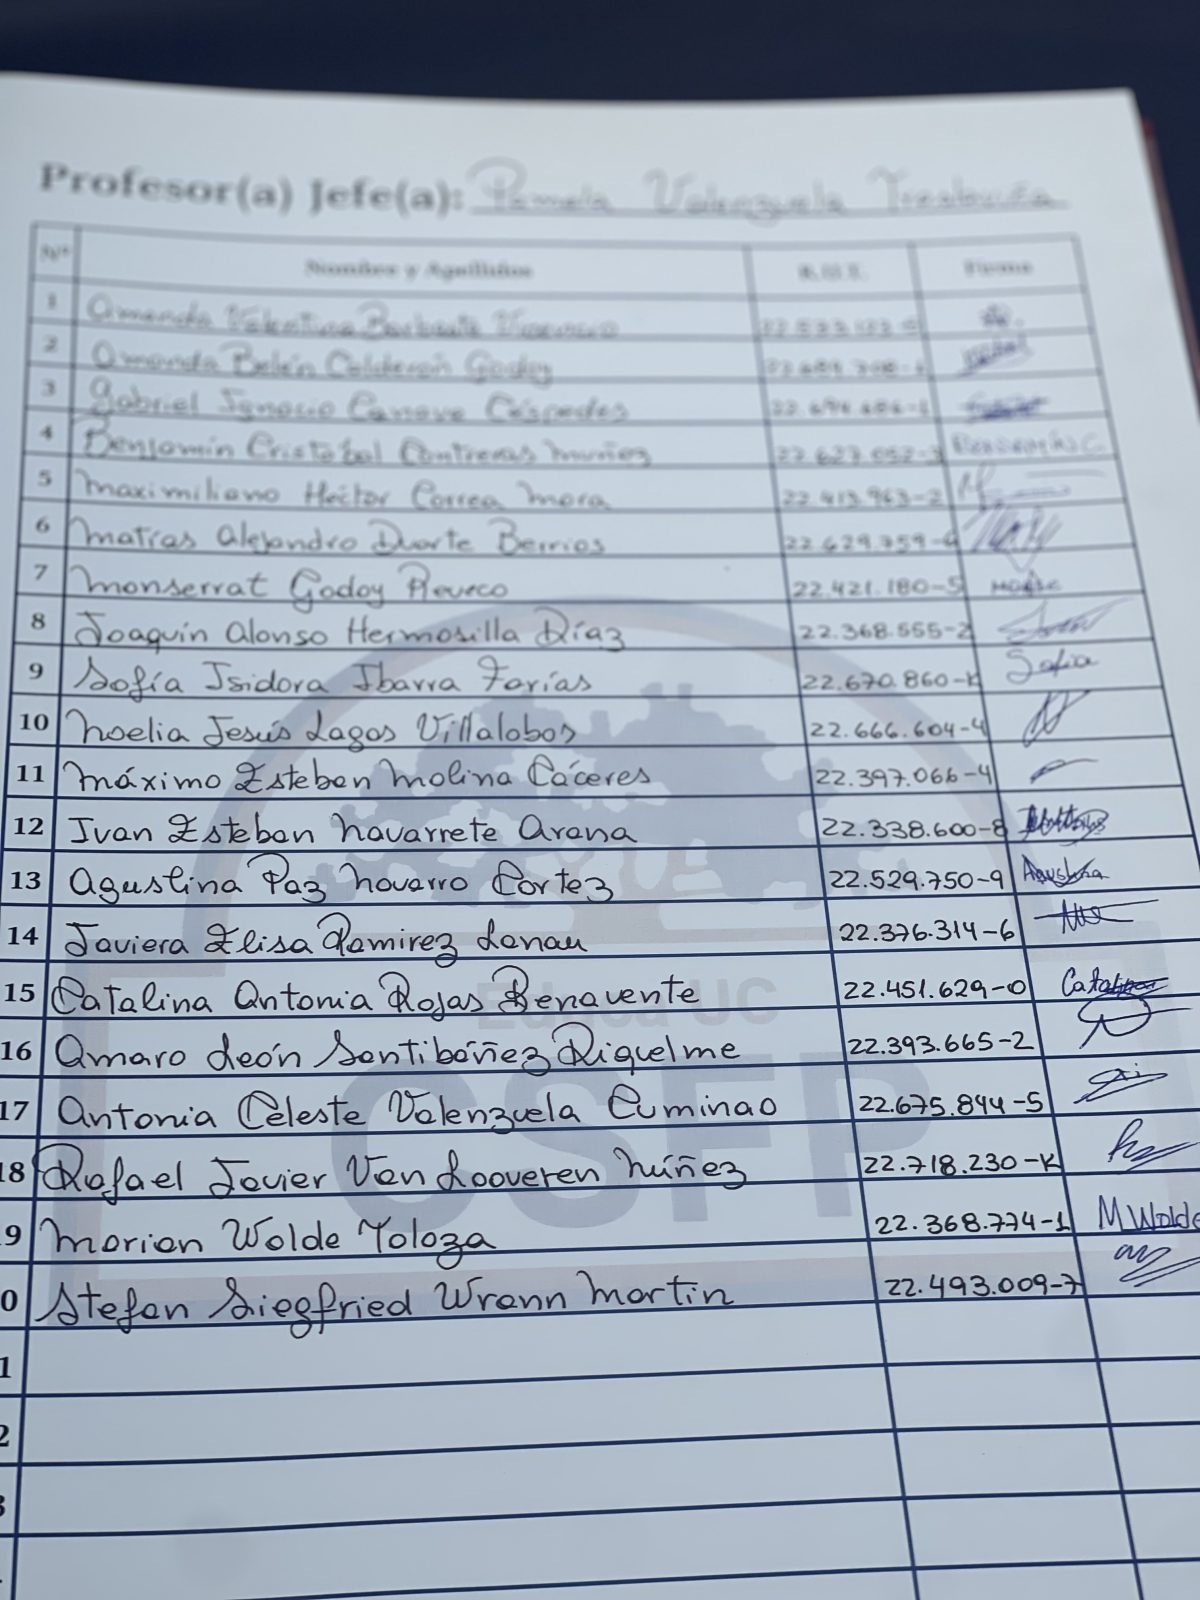 Profesor(a) Jefe(a): Pamela Valenzuela
Nº Nombre y Apellidos R.U.T. Firma
1 Amanda Valentina
2 Amanda Belén Calderón Godoy
3 Gabriel Ignacio Canave Céspedes
4 Benjamín Cristóbal Contreras Muñoz 22.627.052-3
5 Maximiliano Héctor Correa Mora 22.413.963-2
6 Matías Alejandro Duarte Berrios 22.629.759-9
7 Monserrat Godoy Reveco 22.421.180-5 Monse
8 Joaquín Alonso Hermosilla Díaz 22.368.555-2
9 Sofía Isidora Ibarra Farías 22.670.860-K Sofia
10 Noelia Jesús Lagos Villalobos 22.666.604-4
11 Máximo Esteban Molina Cáceres 22.397.066-4
12 Ivan Esteban Navarrete Arana 22.338.600-8
13 Agustina Paz Navarro Cortez 22.529.750-9 Agustina
14 Javiera Elisa Ramirez Lanau 22.376.314-6
15 Catalina Antonia Rojas Benavente 22.451.629-0 Catalina
16 Amaro León Santibáñez Riquelme 22.393.665-2
17 Antonia Celeste Valenzuela Cuminao 22.675.844-5
18 Rafael Javier Van Looveren Núñez 22.718.230-K
9 Marian Wolde Toloza 22.368.774-1 M Wolde
0 Stefan Siegfried Wrann Martin 22.493.009-7
1
2
3
Educa UC
CSFP